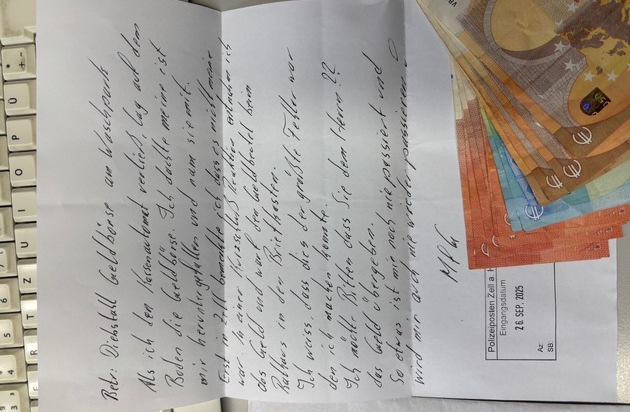 Betr: Diebstall Geldbörse am Waschpark
Als ich den Kassenautomat verließ, lag auf dem
Boden die Geldbörse. Ich dachte meiner ist
mir heruntergefallen und nam sie mit.
Erst in Zell bemerkte ich dass es nicht meine
war. In einer Kurzschluß Reaktion entnahm ich
das Geld und warf den Geldbeutel beim
Rathaus in den Briefkasten.
Ich weiss, dass dies der größte Fehler war
den ich machen konnte.
Ich möchte Bitten dass Sie dem Herrn ??
das Geld übergeben.
So etwas ist mir noch nie passiert und
wird mir auch nie wieder passieren
MFG
Polizeiposten Zell a. H
Eingangsdatum
26. SEP. 2025
Az:
SB: